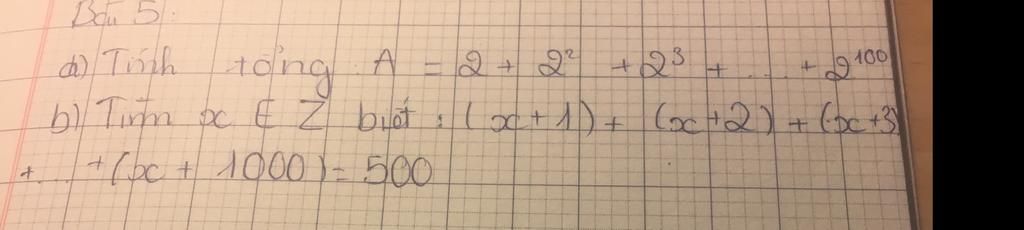 Bài 5:
a) Tính tổng A = 2 + 2² + 2³ + ... + 2¹⁰⁰
b) Tìm x ∈ Z biết : (x+1) + (x+2) + (x+3)
+ ... + (x + 1000) = 500